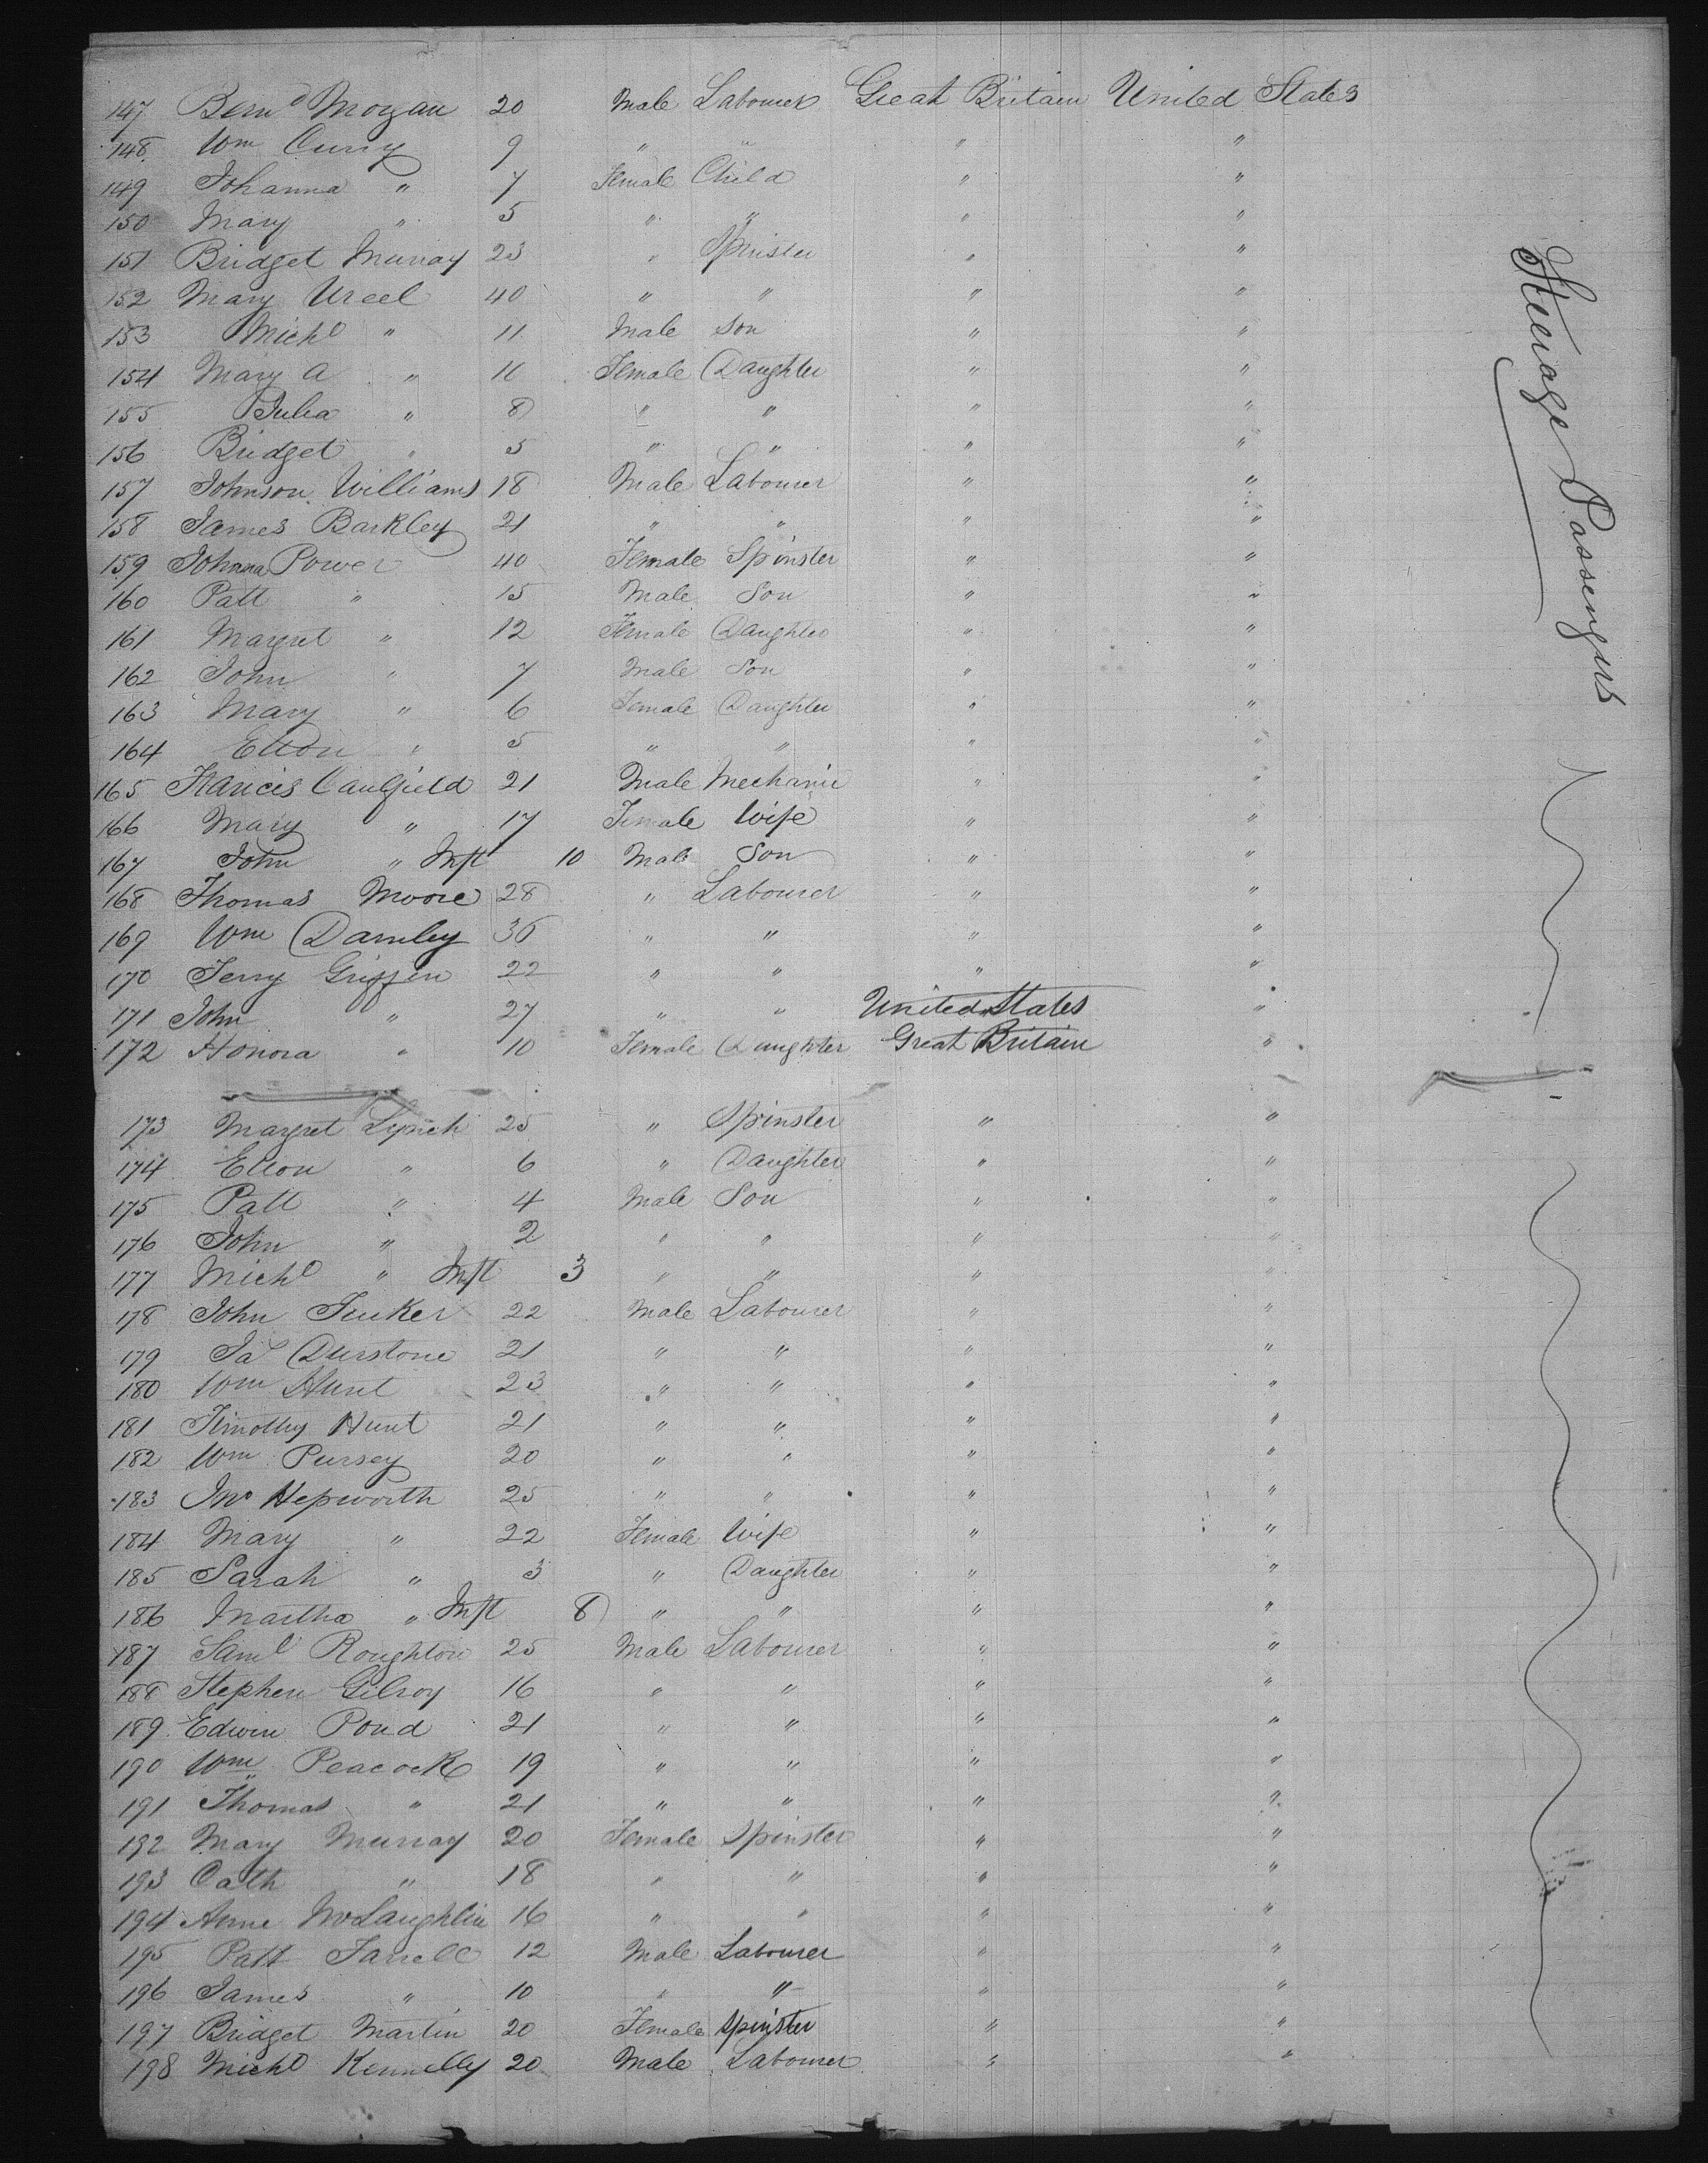 147 Bernd Morgan 20 Male Labourer Great Britain United States
148 Wm Curry 9 " " " "
149 Johanna " 7 Female Child " "
150 Mary " 5 " " " "
151 Bridget Murray 23 " Spinster " "
152 Mary 40 " " " "
153 Michl " 11 Male Son " "
154 Mary A " Female Daughter " "
155 Julia " 8 " " " "
156 Bridget " 5 " " " "
157 Johnson Williams 18 Male Labourer " "
158 James Barkley 21 " " " "
159 Johnna Power 40 Female Spinster " "
160 Patt " 15 Male Son " "
161 Margret " 12 Female Daughter " "
162 John " 7 Male Son " "
163 Mary " 6 Female Daughter " "
164 " 5 " " " "
165 Francis Caulfield 21 Male Mechanic " "
166 Mary " 17 Female Wife " "
167 John " Inft 10 Male Son " "
168 Thomas Moore 28 " Labourer " "
169 Wm Darnley 36 " " " "
170 Jerry Griffen 22 " " " "
171 John " 27 " " United States "
172 Honora " 10 Female Daughter Great Britain "
173 Margret Lynch 25 " Spinster " "
174 Ellon " 6 " Daughter " "
175 Patt " 4 Male Son " "
176 John " 2 " " " "
177 Michl " Inft 3 " " " "
178 John Tucker 22 Male Labourer " "
179 Jas Durstone 21 " " " "
180 Wm Hunt 23 " " " "
181 Timothy Hunt 21 " " " "
182 Wm Pursey 20 " " " "
183 Jno Hepworth 25 " " " "
184 Mary " 22 Female Wife " "
185 Sarah " 3 " Daughter " "
186 Martha " Inft 8 " " " "
187 Saml Roughton 25 Male Labourer " "
188 Stephen Gilroy 16 " " " "
189 Edwin Pond 21 " " " "
190 Wm Peacock 19 " " " "
191 Thomas " 21 " " " "
192 Mary Murray 20 Female Spinster " "
193 Cath " 18 " " " "
194 Anne McLaughlin 16 " " " "
195 Patt Farrell 12 Male Labourer " "
196 James " 10 " " " "
197 Bridget Martin 20 Female Spinster " "
198 Michl Kennelly 20 Male Labourer " "
Steerage Passengers